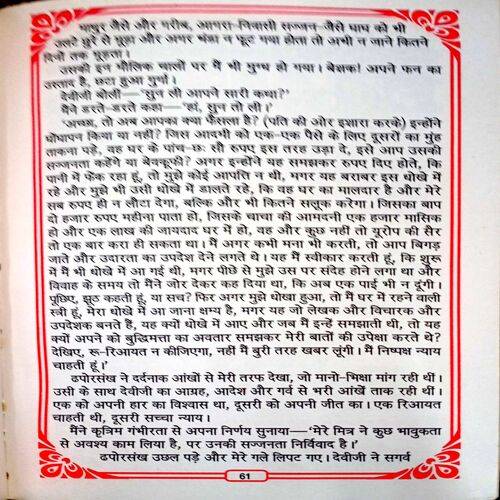 माथुर जैसे और गरीब, आगरा-निवासी सज्जन-जैसे घाघ को भी
उलटे छुरे से मूड़ा और अगर भंडा न फूट गया होता तो अभी न जाने कितने
दिनों तक मूड़ता।
उसकी इन मौलिक चालों पर मैं भी मुग्ध हो गया। बेशक! अपने फन का
उस्ताद है, छटा हुआ गुर्गा।
देवीजी बोलीं—'सुन ली आपने सारी कथा?'
मैंने डरते-डरते कहा—'हां, सुन तो ली।'
'अच्छा, तो अब आपका क्या फैसला है? (पति की ओर इशारा करके) इन्होंने
घोंघापन किया या नहीं? जिस आदमी को एक-एक पैसे के लिए दूसरों का मुंह
ताकना पड़े, वह घर के पांच-छः सौ रुपए इस तरह उड़ा दे, इसे आप उसकी
सज्जनता कहेंगे या बेवकूफी? अगर इन्होंने यह समझकर रुपए दिए होते, कि
पानी में फेंक रहा हूं, तो मुझे कोई आपत्ति न थी, मगर यह बराबर इस धोखे में
रहे और मुझे भी उसी धोखे में डालते रहे, कि वह घर का मालदार है और मेरे
सब रुपए ही न लौटा देगा, बल्कि और भी कितने सलूक करेगा। जिसका बाप
दो हजार रुपए महीना पाता हो, जिसके चाचा की आमदनी एक हजार मासिक
हो और एक लाख की जायदाद घर में हो, वह और कुछ नहीं तो यूरोप की सैर
तो एक बार करा ही सकता था। मैं अगर कभी मना भी करती, तो आप बिगड़
जाते और उदारता का उपदेश देने लगते थे। यह मैं स्वीकार करती हूं, कि शुरू
में मैं भी धोखे में आ गई थी, मगर पीछे से मुझे उस पर संदेह होने लगा था और
विवाह के समय तो मैंने जोर देकर कह दिया था, कि अब एक पाई भी न दूंगी।
पूछिए, झूठ कहती हूं, या सच? फिर अगर मुझे धोखा हुआ, तो मैं घर में रहने वाली
स्त्री हूं, मेरा धोखे में आ जाना क्षम्य है, मगर यह जो लेखक और विचारक और
उपदेशक बनते हैं, यह क्यों धोखे में आए और जब मैं इन्हें समझाती थी, तो यह
क्यों अपने को बुद्धिमत्ता का अवतार समझकर मेरी बातों की उपेक्षा करते थे?
देखिए, रू-रिआयत न कीजिएगा, नहीं मैं बुरी तरह खबर लूंगी। मैं निष्पक्ष न्याय
चाहती हूं।'
ढपोरसंख ने दर्दनाक आंखों से मेरी तरफ देखा, जो मानो-भिक्षा मांग रही थीं।
उसी के साथ देवीजी का आग्रह, आदेश और गर्व से भरी आंखें ताक रही थीं।
एक को अपनी हार का विश्वास था, दूसरी को अपनी जीत का। एक रिआयत
चाहती थी, दूसरी सच्चा न्याय।
मैंने कृत्रिम गंभीरता से अपना निर्णय सुनाया—'मेरे मित्र ने कुछ भावुकता
से अवश्य काम लिया है, पर उनकी सज्जनता निर्विवाद है।'
ढपोरसंख उछल पड़े और मेरे गले लिपट गए। देवीजी ने सगर्व
61